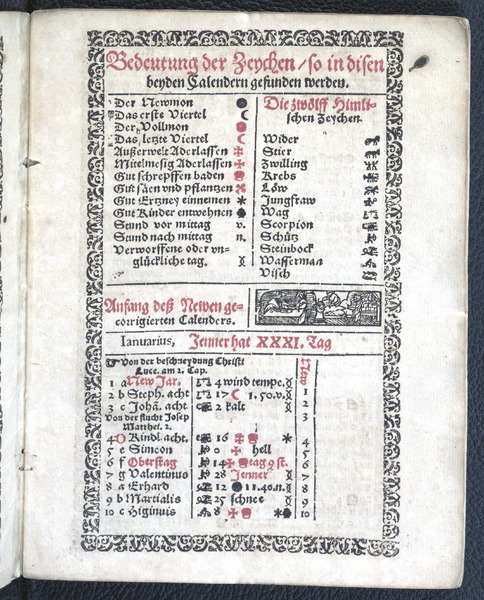 Bedeutung der Zeychen / so in disen
beyden Calendern gefunden werden.
Der Newmon
Das erste Viertel
Der Vollmon
Das letzte Viertel
Außerwelt Aderlassen
Mitelmesig Aderlassen
Gut schrepffen baden
Gut säen vnd pflantzen
Gut Ertzney einnemen
Gut Kinder entwehnen
Stund vor mittag v.
Stund nach mittag n.
Verworffene oder vn-
glückliche tag.
Die zwölff Himli-
schen Zeychen.
Wider
Stier
Zwilling
Krebs
Löw
Jungfraw
Wag
Scorpion
Schütz
Steinbock
Wasserman
Visch
Anfang deß Newen ge-
corrigierten Calenders.
Ianuarius, Jenner hat XXXI. Tag
Von der beschneydung Christi
Luce. am 2. Cap.
1 a New Jar. 4 wind tempe. 1
2 b Steph. acht 17 1.50.v. 2
3 c Johā. acht 2 kalt 3
Von der flucht Josep
Matthei. 2.
4 Kindl. acht. 16 4
5 e Simeon 0 hell 5
6 f Oberstag 14 tag 9 st. 6
7 g Valentinus 28 Jenner 7
8 a Erhard 12 11.40.n. 8
9 b Martialis 25 schnee 9
10 c Higinuis 8 10